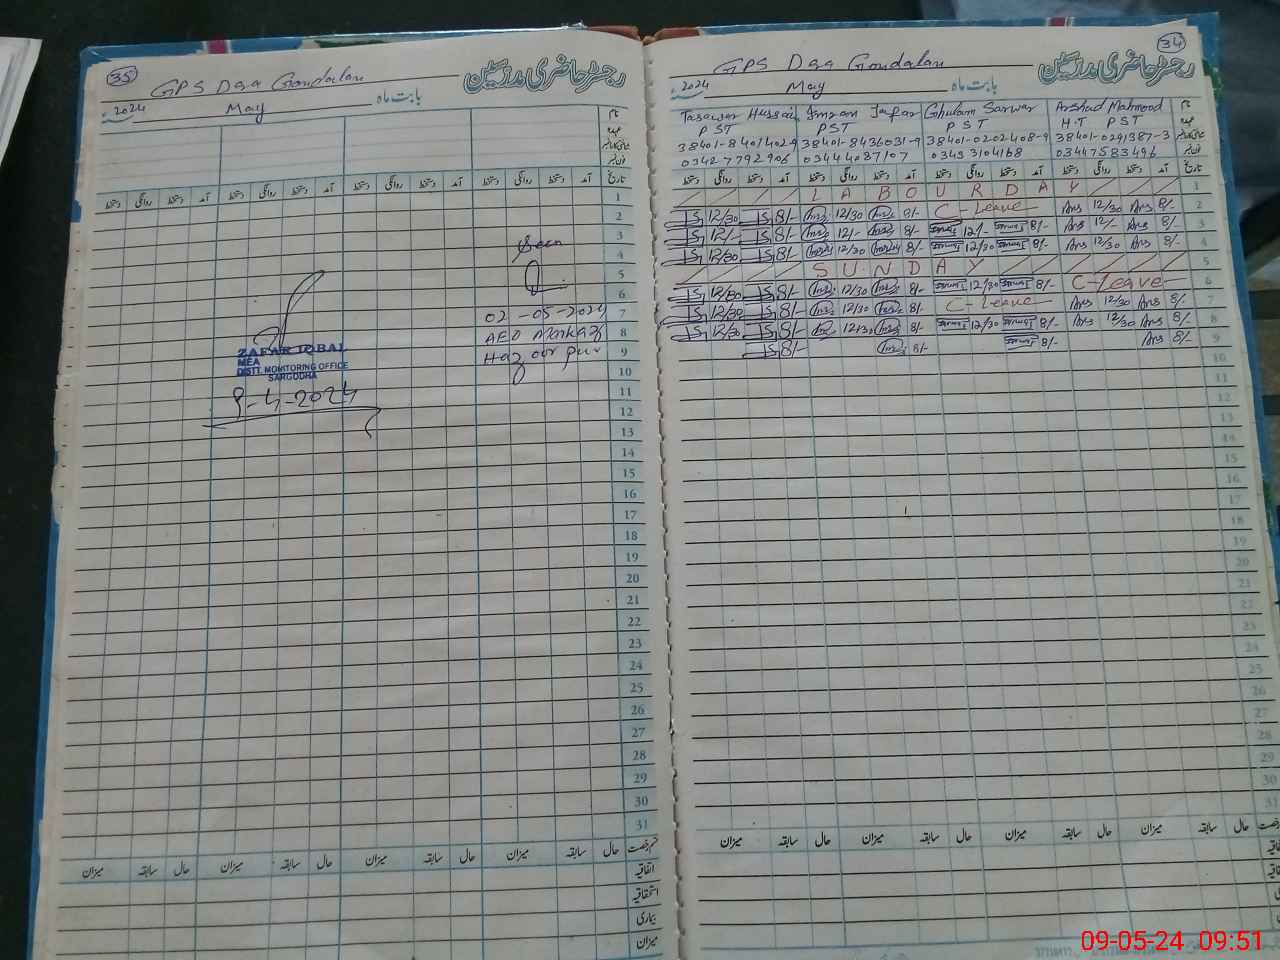 35
GPS Daa Gondalan
رجسٹر حاضری مدرسین
2024
May
بابت ماہ
تاریخ
آمد دستخط روانگی دستخط آمد دستخط روانگی دستخط آمد دستخط روانگی دستخط آمد دستخط روانگی دستخط
1
2
3
Seen
4
5
6
02-05-2024
7
AEO Markaz
8
9
10
ZAFAR IQBAL
MEA
DISTT. MONITORING OFFICE
SARGODHA
9-4-2024
11
12
13
14
15
16
17
18
19
20
21
22
23
24
25
26
27
28
29
30
31
حال سابقہ میزان حال سابقہ میزان حال سابقہ میزان حال سابقہ میزان
اتفاقیہ
استحقاقیہ
بیماری
میزان
34
GPS Daa Gondalan
رجسٹر حاضری مدرسین
2024
May
بابت ماہ
Tasawar Hussain Imran Jafar Ghulam Sarwar Arshad Mahmood
PST PST PST H.T PST
38401-8401402-9 38401-8436031-9 38401-0202408-9 38401-0291387-3
03427792906 03444087107 03453104168 03447583496
تاریخ
آمد دستخط روانگی دستخط آمد دستخط روانگی دستخط آمد دستخط روانگی دستخط آمد دستخط روانگی دستخط
LABOUR DAY 1
12/30 8/- 12/30 8/- C-Leave Ars 12/30 Ars 8/- 2
12/- 8/- 12/- 8/- 12/- 8/- Ars 12/- Ars 8/- 3
12/30 8/- 12/30 8/- 12/30 8/- Ars 12/30 Ars 8/- 4
SUNDAY 5
12/30 8/- 12/30 8/- 12/30 8/- C-Leave 6
12/30 8/- 12/30 8/- C-Leave Ars 12/30 Ars 8/- 7
12/30 8/- 12/30 8/- 12/30 8/- Ars 12/30 Ars 8/- 8
8/- 8/- 8/- Ars 8/- 9
10
11
12
13
14
15
16
17
18
19
20
21
22
23
24
25
26
27
28
29
30
31
حال سابقہ میزان حال سابقہ میزان حال سابقہ میزان حال سابقہ میزان
09-05-24 09:51